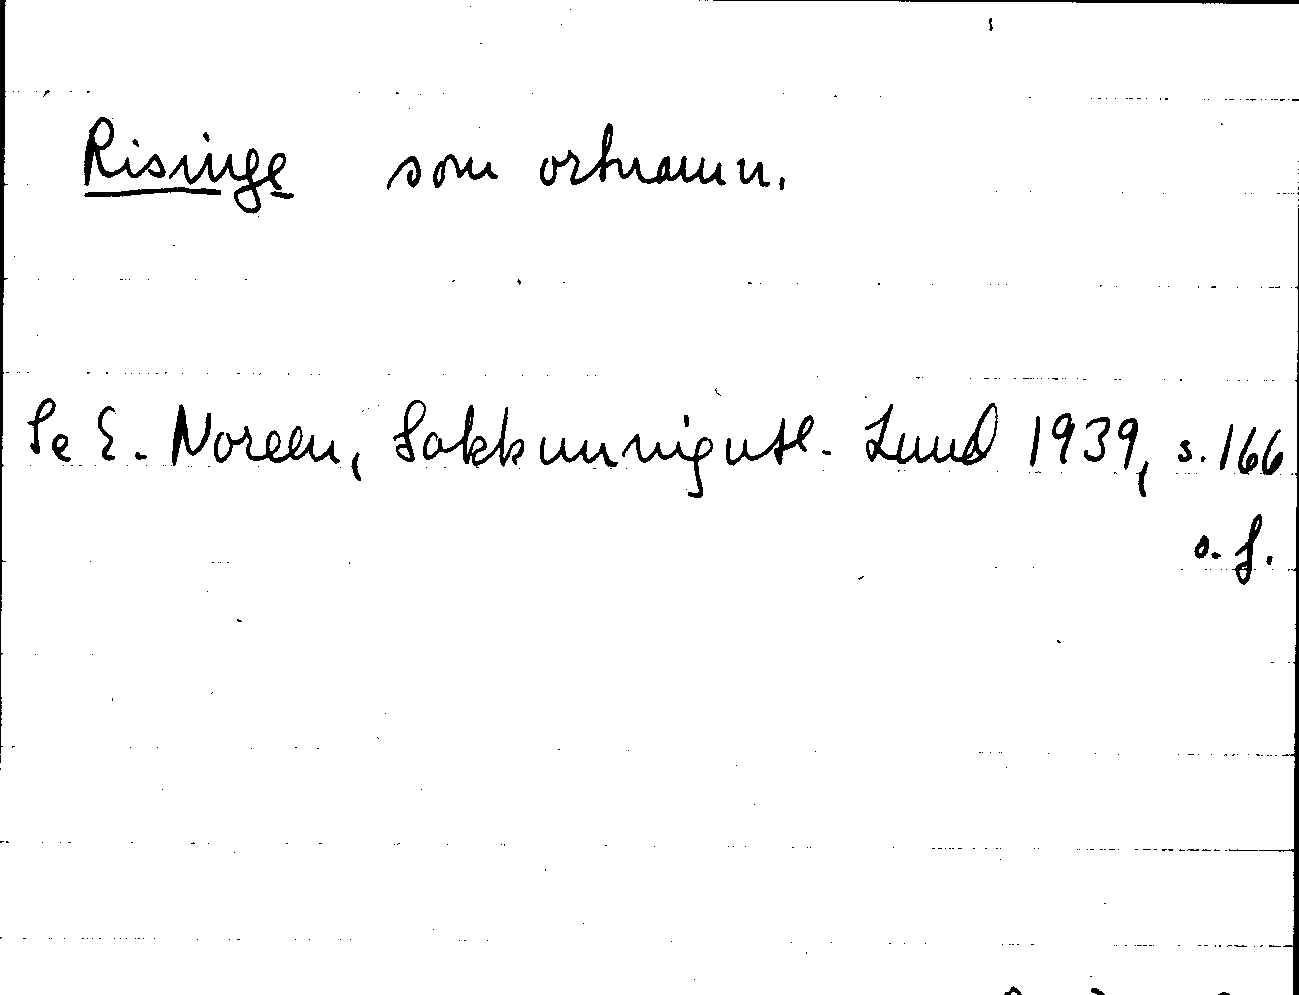 Risinge som ortnamn.
Se E. Noreen, Sakkunnigutl. Lund 1939, s. 166
o. f.